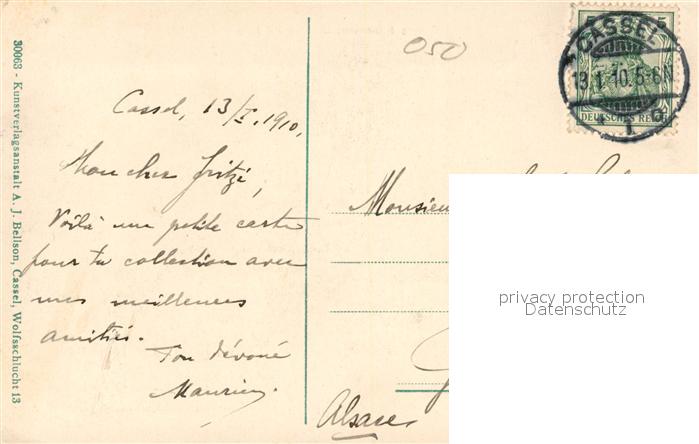 050
5
CASSEL
13.1.10.5-6N
DEUTSCHES REICH
Cassel, 13/I. 1910.
Mon cher Fritzé,
Voilà une petite carte
pour ta collection avec
mes meilleures
amitiés.
Ton dévoué
Maurice.
Monsieur
Alsace
privacy protection
Datenschutz
30063 - Kunstverlagsanstalt A. J. Bellson, Cassel, Wolfsschlucht 13